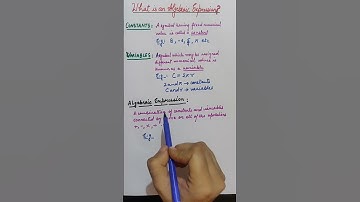 What is an Algebraic Expression
CONSTANTS: A symbol having fixed numerical
value is called a constant
E.g:- 8, -
VARIABLES: A symbol which may be assigned
different numerical values is
known as a variable
E.g:- C = 2πr
2 and π → constants
C and r → variables
Algebraic Expression:
A combination of constants and variables
connected by or all of the operations
E.g.